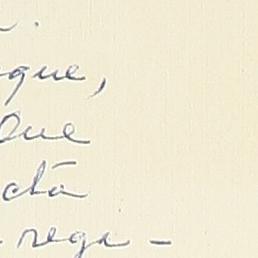 que,
Que
ctā
rege-